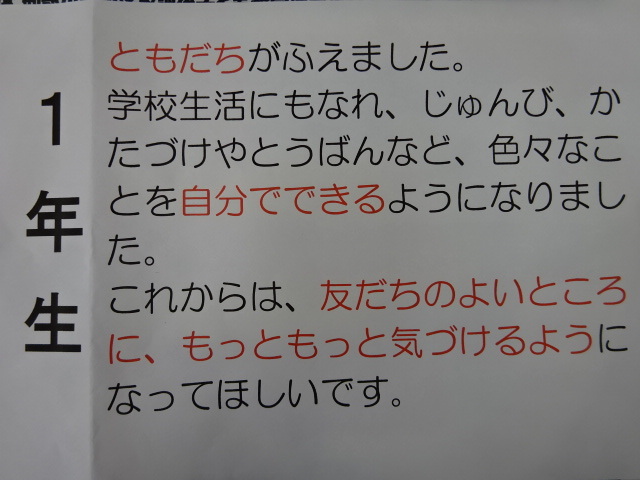 1年生
ともだちがふえました。
学校生活にもなれ、じゅんび、か
たづけやとうばんなど、色々なこ
とを自分でできるようになりまし
た。
これからは、友だちのよいところ
に、もっともっと気づけるように
なってほしいです。